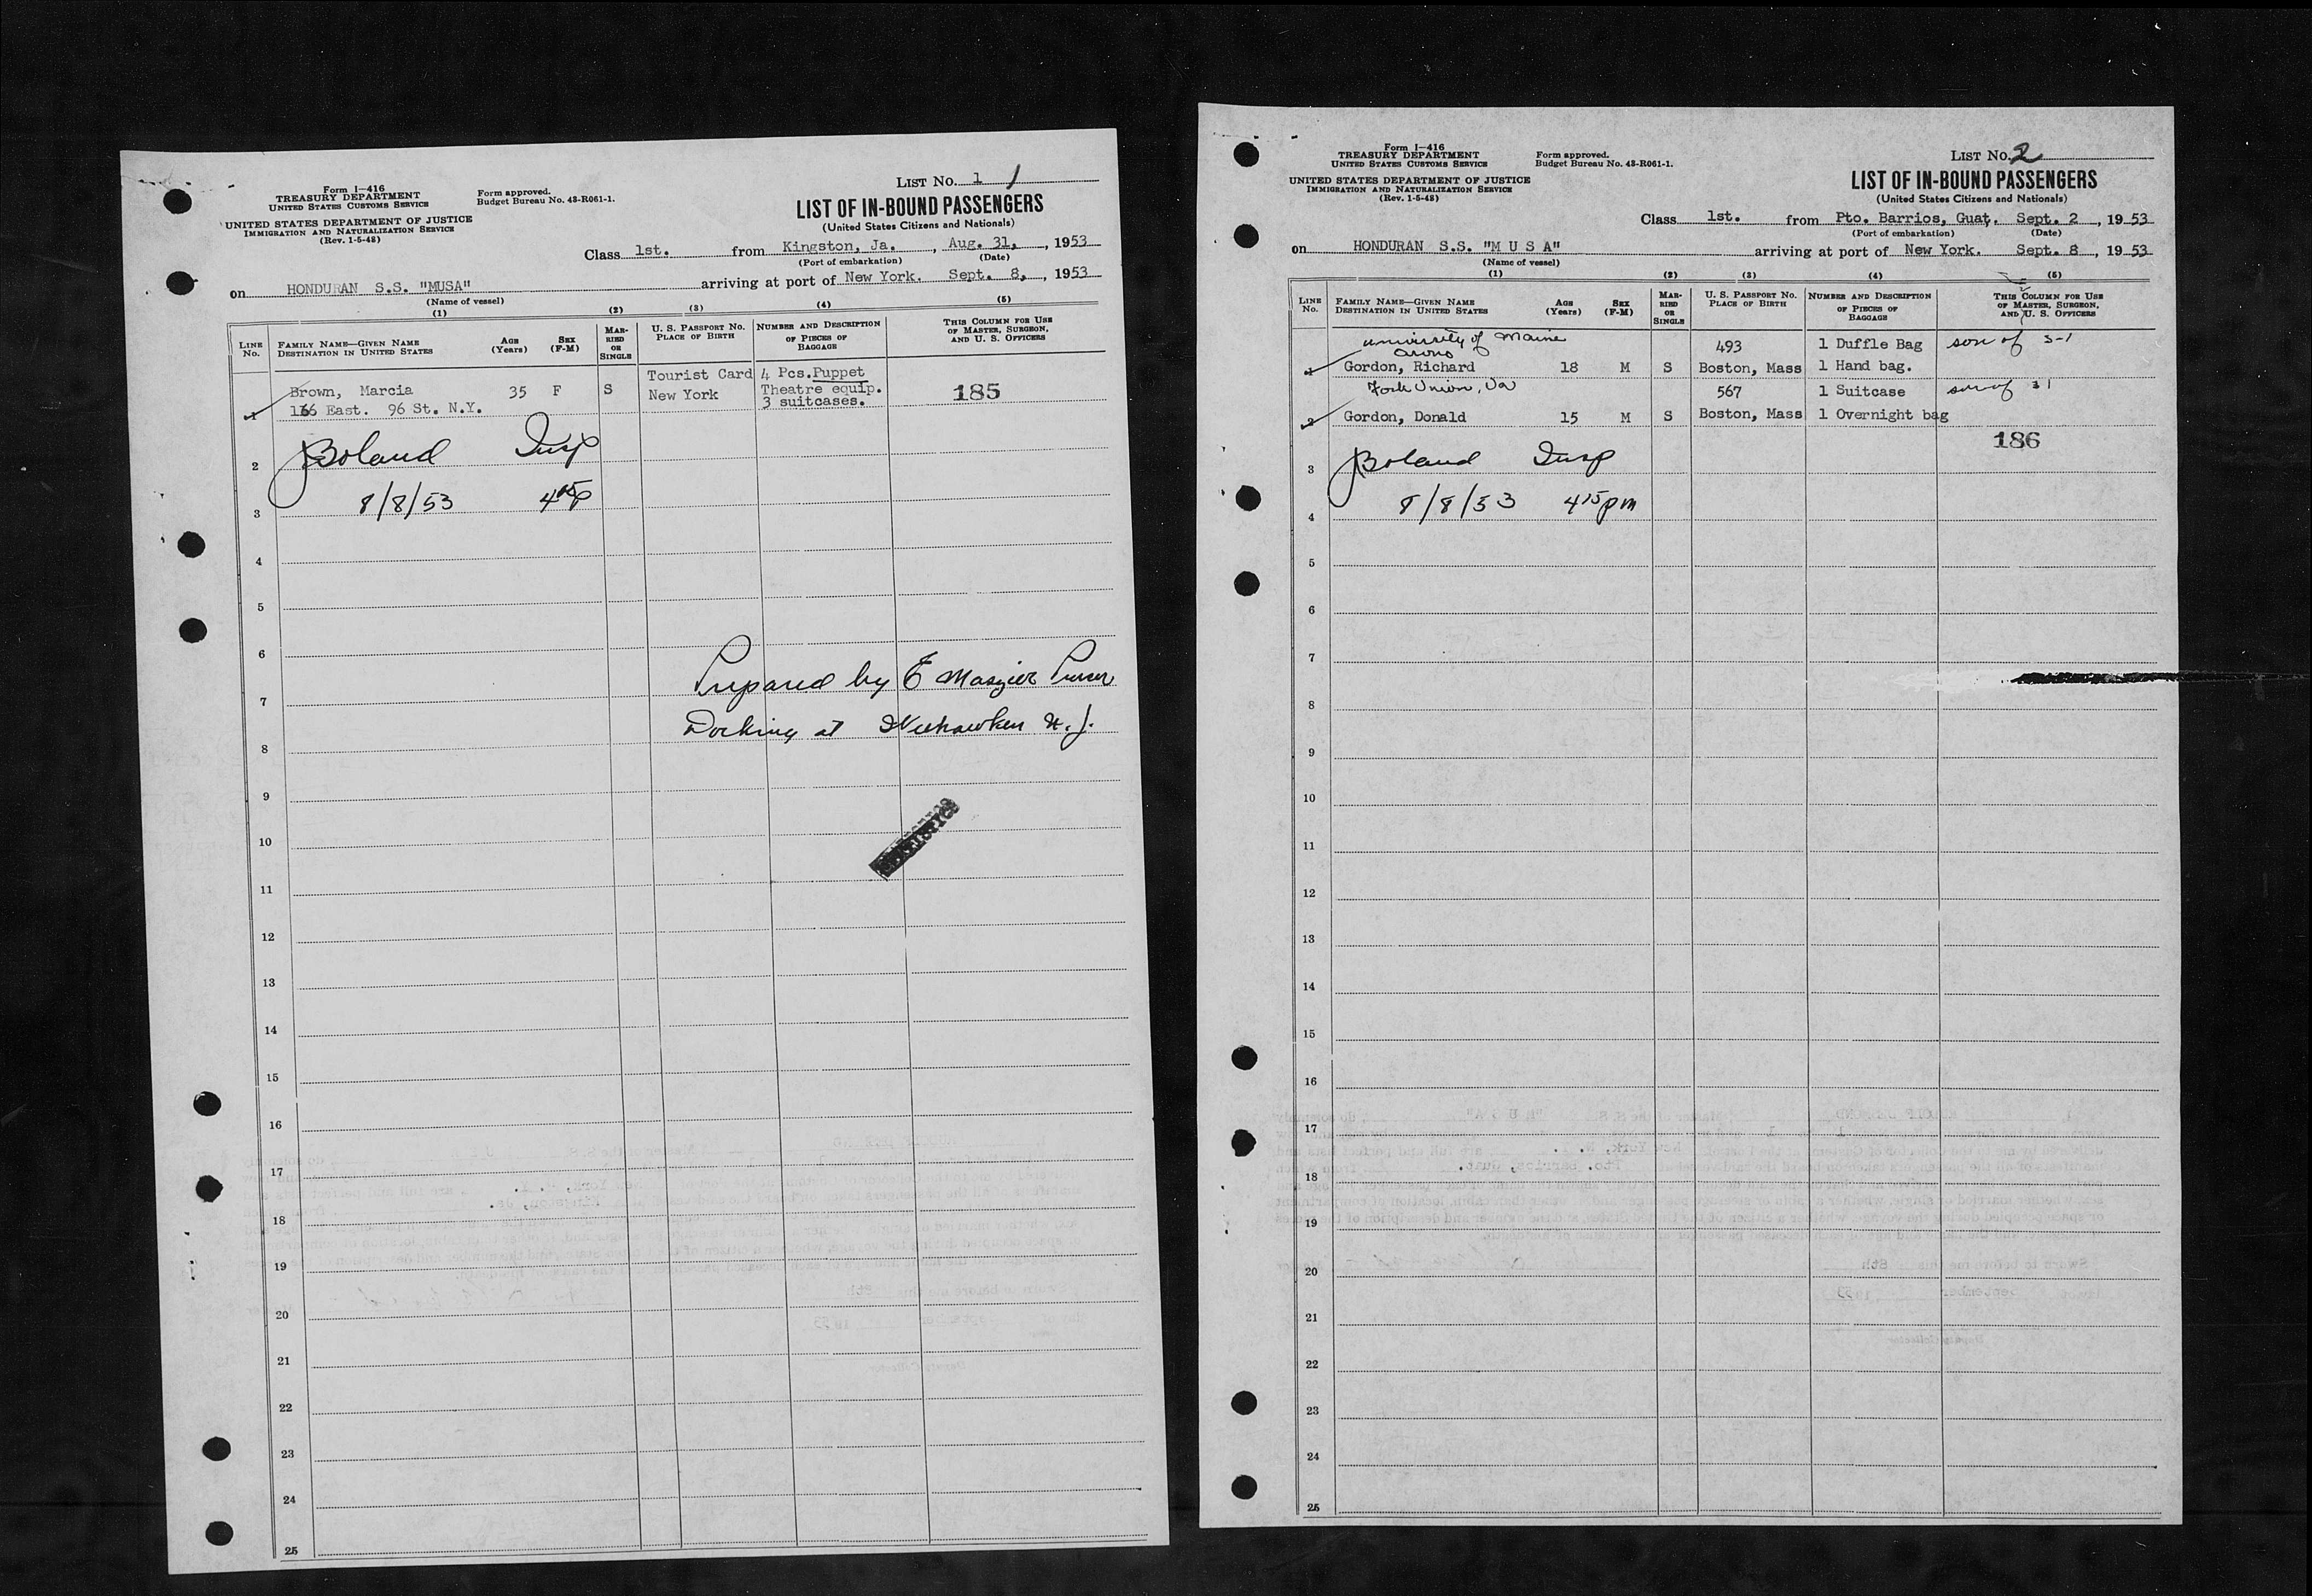 Form I-416
TREASURY DEPARTMENT
UNITED STATES CUSTOMS SERVICE
Form approved.
Budget Bureau No. 43-R061-1.
LIST NO. 1 1
UNITED STATES DEPARTMENT OF JUSTICE
IMMIGRATION AND NATURALIZATION SERVICE
(Rev. 1-5-48)
LIST OF IN-BOUND PASSENGERS
(United States Citizens and Nationals)
Class 1st. from Kingston, Ja., Aug. 31, , 1953
(Port of embarkation) (Date)
on HONDURAN S.S. "MUSA" arriving at port of New York. Sept. 8, , 1953
(Name of vessel)
(1) (2) (3) (4) (5)
LINE No. FAMILY NAME—GIVEN NAME DESTINATION IN UNITED STATES AGE (Years) SEX (F-M) MARRIED OR SINGLE U. S. PASSPORT NO. PLACE OF BIRTH NUMBER AND DESCRIPTION OF PIECES OF BAGGAGE THIS COLUMN FOR USE OF MASTER, SURGEON, AND U. S. OFFICERS
Tourist Card 4 Pcs.Puppet
1 Brown, Marcia 35 F S New York Theatre equip. 185
166 East. 96 St. N.Y. 3 suitcases.
2 Boland Insp
3 8/8/53 4 15 p
4
5
6
7 Prepared by E Maszier Purser
8 Docking at Weehawken N.J.
9
10
11
12
13
14
15
16
17
18
19
20
21
22
23
24
25
Form I-416
TREASURY DEPARTMENT
UNITED STATES CUSTOMS SERVICE
Form approved.
Budget Bureau No. 43-R061-1.
LIST NO. 2
UNITED STATES DEPARTMENT OF JUSTICE
IMMIGRATION AND NATURALIZATION SERVICE
(Rev. 1-5-48)
LIST OF IN-BOUND PASSENGERS
(United States Citizens and Nationals)
Class 1st. from Pto. Barrios, Guat. Sept. 2 , 1953
(Port of embarkation) (Date)
on HONDURAN S.S. "M U S A" arriving at port of New York. Sept. 8 , 1953
(Name of vessel)
(1) (2) (3) (4) (5)
LINE No. FAMILY NAME—GIVEN NAME DESTINATION IN UNITED STATES AGE (Years) SEX (F-M) MARRIED OR SINGLE U. S. PASSPORT NO. PLACE OF BIRTH NUMBER AND DESCRIPTION OF PIECES OF BAGGAGE THIS COLUMN FOR USE OF MASTER, SURGEON, AND U. S. OFFICERS
University of Maine
Orono 493 1 Duffle Bag son of 3-1
1 Gordon, Richard 18 M S Boston, Mass 1 Hand bag.
Fork Union, Va 567 1 Suitcase son of 31
2 Gordon, Donald 15 M S Boston, Mass 1 Overnight bag
186
3 Boland Insp
4 8/8/53 4 15 pm
5
6
7
8
9
10
11
12
13
14
15
16
17
18
19
20
21
22
23
24
25